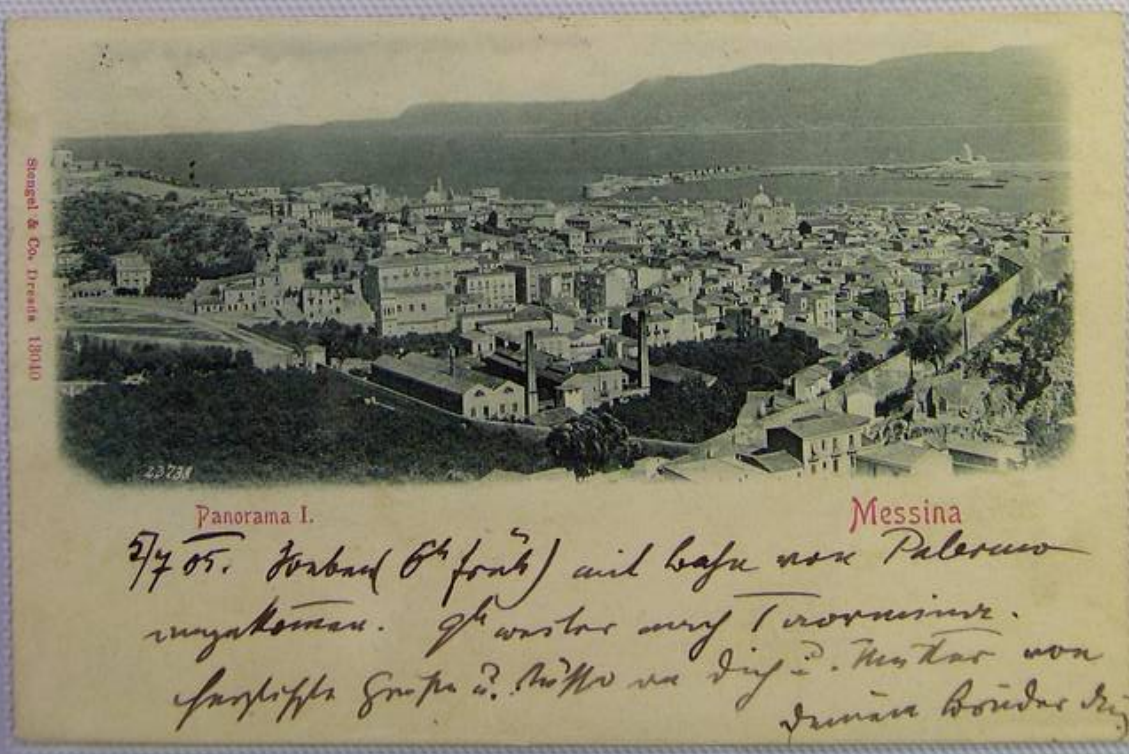 Stengel & Co. Dresda 18040
23738
Panorama I.
Messina
5/7 05. Soeben (6h früh) mit Bahn von Palermo
angekommen. 9h weiter nach Taormina.
herzlichste Grüße u. Küsse an Dich u. Mutter von
Deinem Bruder